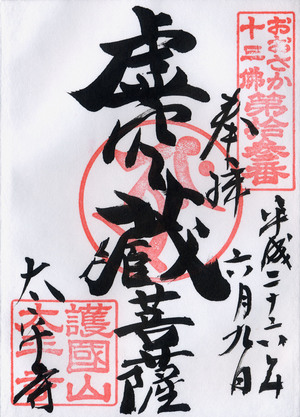 おおさか
十三佛
第拾参番
奉拝
平成二十六年
六月九日
虚空蔵菩薩
太平寺
護國山
太平寺